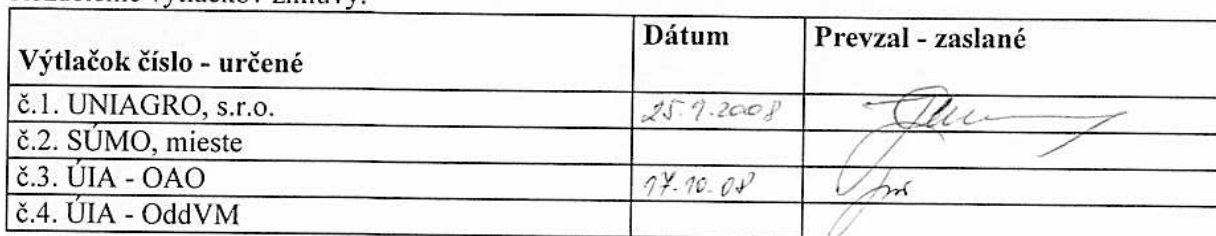 Výtlačok číslo - určené Dátum Prevzal - zaslané
č.1. UNIAGRO, s.r.o. 25.9.2008
č.2. SÚMO, mieste
č.3. ÚIA - OAO 17.10.08
č.4. ÚIA - OddVM